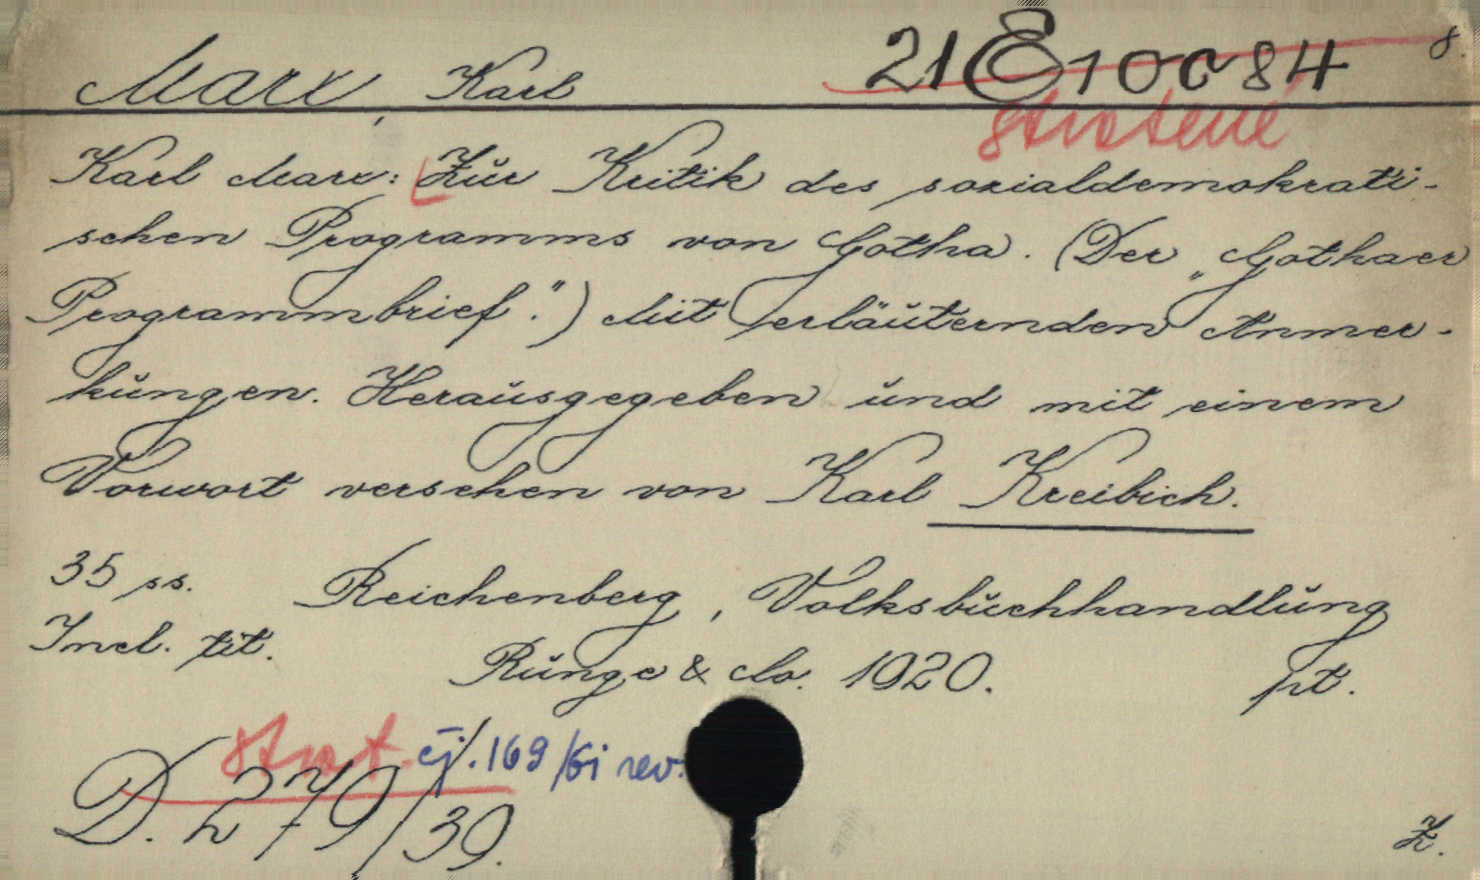 Marx, Karl 21 E 10084 8.
ztracené
Karl Marx: Zur Kritik des sozialdemokrati-
schen Programms von Gotha. (Der „Gothaer
Programmbrief".) Mit erläuternden Anmer-
kungen. Herausgegeben und mit einem
Vorwort versehen von Karl Kreibich.
35 ss. Reichenberg, Volksbuchhandlung
Incl. tit. Runge & Co. 1920. pt.
ztrat. čj. 169/61 rev.
D. 279/39. Z.